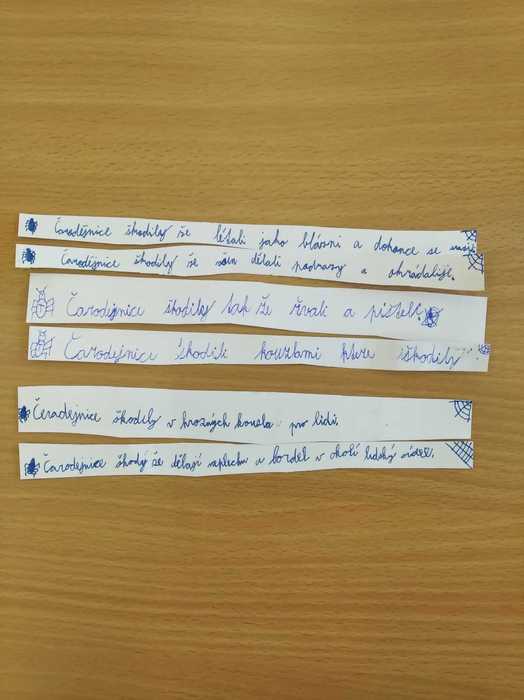 Čarodějnice škodily že létali jako blázni a dokonce se
Čarodějnice škodily že dělali podrazy a okrádali je.
Čarodějnice škodily tak že řvali a pištěli.
Čarodejnice škodili kouzlami ktere škodily
Čeradejnice škodily v hrozných kouzla pro lidi.
Čarodejnice škodý že dělají neplechu a bordel v okolí lidský sídel.